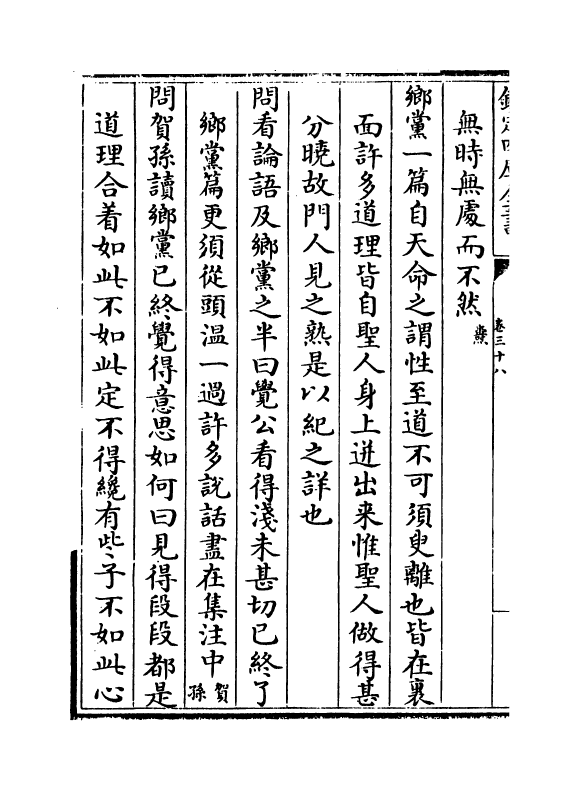 欽定四庫全書
卷三十八
無時無處而不然 燾
鄉黨一篇自天命之謂性至道不可須臾離也皆在裏
面許多道理皆自聖人身上迸出来惟聖人做得甚
分曉故門人見之熟是以紀之詳也
問看論語及鄉黨之半曰覺公看得淺未甚切已終了
鄉黨篇更須從頭溫一過許多說話盡在集注中 賀孫
問賀孫讀鄉黨已終覺得意思如何曰見得段段都是
道理合着如此不如此定不得纔有些子不如此心